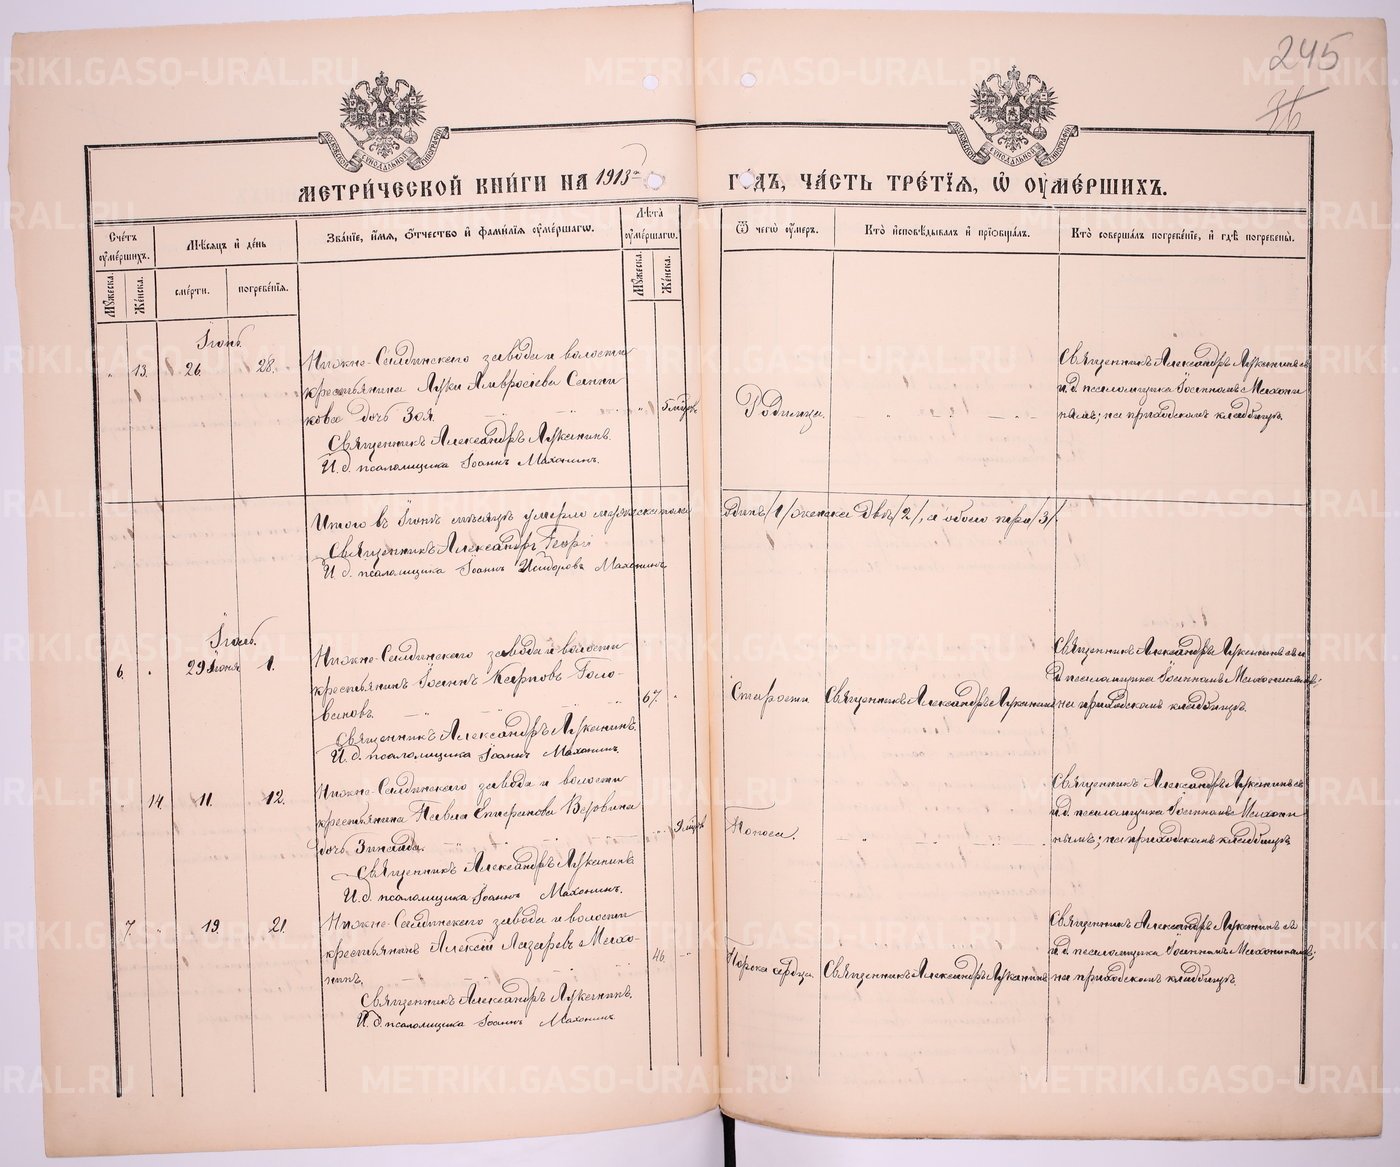 245
36
МЕТРИ́ЧЕСКОЙ КНИ́ГИ НА 1913 й
ГО́ДЪ, ЧА́СТЬ ТРЕ́ТІЯ, Ѽ ОУМЕ́РШИХЪ.
Сче́тъ оуме́ршихъ.
Мѣ́сяцъ и де́нь
Зва́ніе, и́мя, о́тчество и фами́лія оуме́ршаго.
Лѣ́та оуме́ршаго.
Ѿ чего̀ оу́меръ.
Кто̀ исповѣ́дывалъ и пріобща́лъ.
Кто̀ соверша́лъ погребе́ніе, и гдѣ̀ погребены̀.
Му́жеска.
Же́нска.
сме́рти.
погребе́нія.
Му́жеска.
Же́нска.
Іюнь.
13. 26. 28. Нижне-Салдинскаго завода и волости
крестьянина Луки Амвросіева Санни
кова дочь Зоя. 5 мѣс.
Священникъ Александръ Луканинъ.
И. д. псаломщика Іоаннъ Махонинъ.
Родимца.
Священникъ Александръ Луканинъ съ
и. д. псаломщика Іоанномъ Махони
нымъ; на приходскомъ кладбищѣ.
Итого въ Іюнѣ мѣсяцѣ умерло мужеска пола
одинъ /1/ женска двѣ /2/, а обоего три /3/.
Священникъ Александръ Георгій
И. д. псаломщика Іоаннъ Исидоровъ Махонинъ
Іюль.
6. 29 Іюня 1. Нижне-Салдинскаго завода и волости
крестьянинъ Іоаннъ Карповъ Голо-
вановъ. 67.
Священникъ Александръ Луканинъ.
И. д. псаломщика Іоаннъ Махонинъ.
Старости
Священникъ Александръ Луканинъ
Священникъ Александръ Луканинъ съ и
д. псаломщика Іоанномъ Махонинымъ;
на приходскомъ кладбищѣ.
14. 11. 12. Нижне-Салдинскаго завода и волости
крестьянина Павла Епифанова Веровина
дочь Зинаида. 9 мѣс.
Священникъ Александръ Луканинъ
И. д. псаломщика Іоаннъ Махонинъ.
Поноса.
Священникъ Александръ Луканинъ съ
и. д. псаломщика Іоанномъ Махони
нымъ; на приходскомъ кладбищѣ
7. 19. 21. Нижне-Салдинскаго завода и волости
крестьянинъ Алексѣй Лазаревъ Махо-
нинъ. 46.
Священникъ Александръ Луканинъ.
И. д. псаломщика Іоаннъ Махонинъ.
Порока сердца.
Священникъ Александръ Луканинъ
Священникъ Александръ Луканинъ съ
и. д. псаломщика Іоанномъ Махонинымъ;
на приходскомъ кладбищѣ.
METRIKI.GASO-URAL.RU